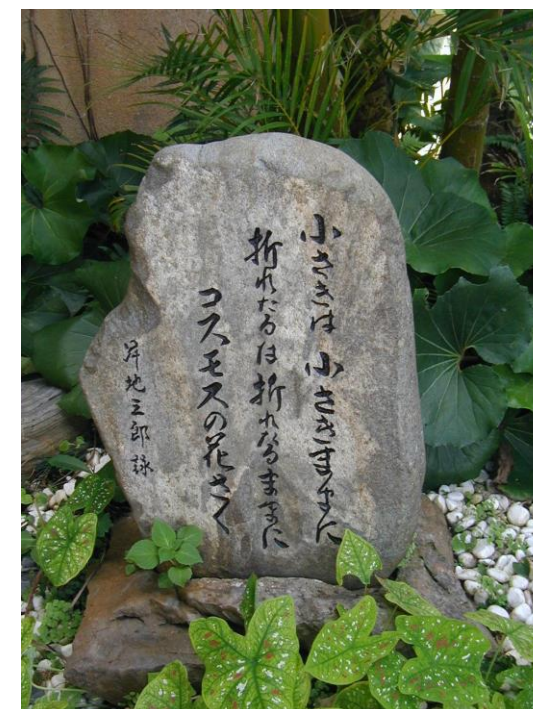 小さきは 小さきままに
折れたるは折れたるままに
コスモスの花さく
昇地三郎 詠